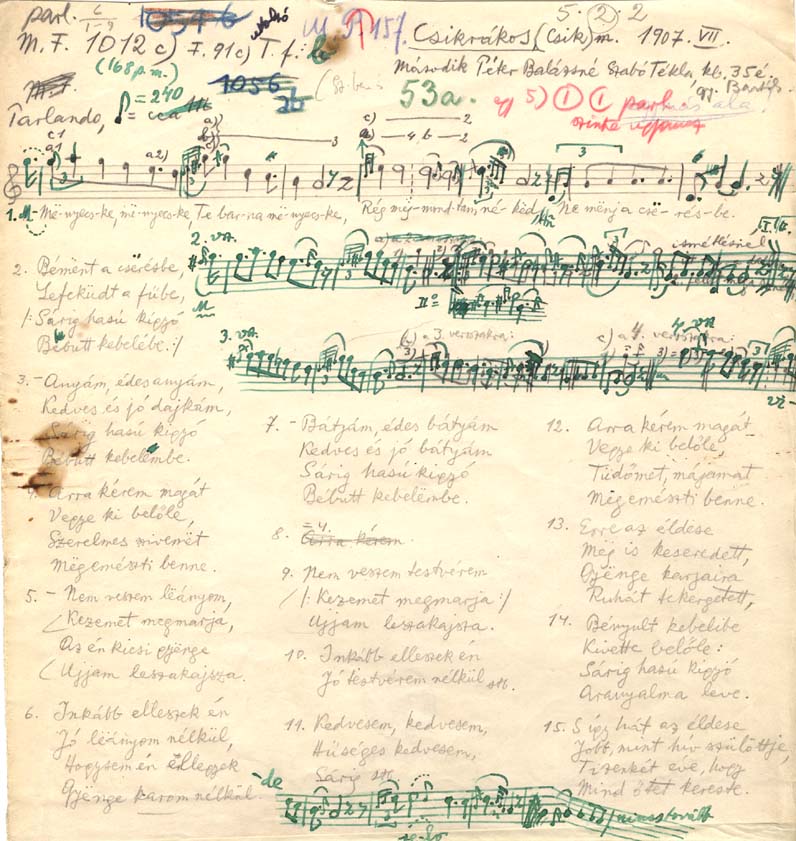 parl.
10546
utolsó
M. F. 1012 c)
F. 91 c)
T. f.:
5. 2. 2
Csikrákos, (Csik) m. 1907. VII.
(168 p.m.)
1056
2b
53a.
Második Péter Balázsné Szabó Tékla, kb. 35 é.
gy. Bartók
= 240
Parlando,
5) 1 1
1. Më-nyecs-ke, më-nyecs-ke, Te bar-na më-nyecs-ke, Rég mëg-mond-tam, né-këd, Ne mënj a cse-rés-be.
2. va.
ismétlésnél
2. Bément a cserésbe,
Lefeküdt a fübe,
/: Sárig hasú kigyó
Bébutt kebelébe. :/
3. va.
b) a 3. verszakra:
c) a 4. verszakra:
4. va
3. - Anyám, édes anyám,
Kedves és jó dajkám,
Sárig hasú kigyó
Bébutt kebelëmbe.
4. Arra kérem magát
Vegye ki belőle,
Szerelmes szivemët
Mëgemészti benne.
5. - Nem veszem lëányom,
Kezemet megmarja,
Az én kicsi gyënge
Ujjam leszakajsza.
6. Inkább elleszek én
Jó lëányom nélkül,
Hogysem én ëllegyek
Gyënge karom nélkül
7. - Bátyám, édes bátyám
Kedves és jó bátyám
Sárig hasú kigyó
Bébutt kebelëmbe.
8. = 4.
Arra kérem
9. Nem veszem testvérem
/: Kezemet megmarja :/
Ujjam leszakajsza.
10. Inkább elleszek én
Jó testvérem nélkül stb.
11. Kedvesem, kedvesem,
Hüséges kedvesem,
Sárig stb.
12. Arra kérem magát
Vegye ki belőle,
Tüdőmet, májamat
Mëgemészti benne.
13. Erre az éldëse
Mëg is keseredett,
Gyënge karjaira
Ruhát tekergetett,
14. Bényult kebelibe
Kivette belőle:
Sárig hasú kigyó
Aranyalma leve.
15. S igy hát az éldëse
Jobb, mint hiv szülöttje,
Tizenkét eve, hogy
Mind őtet kereste.
-de
nincs tovább